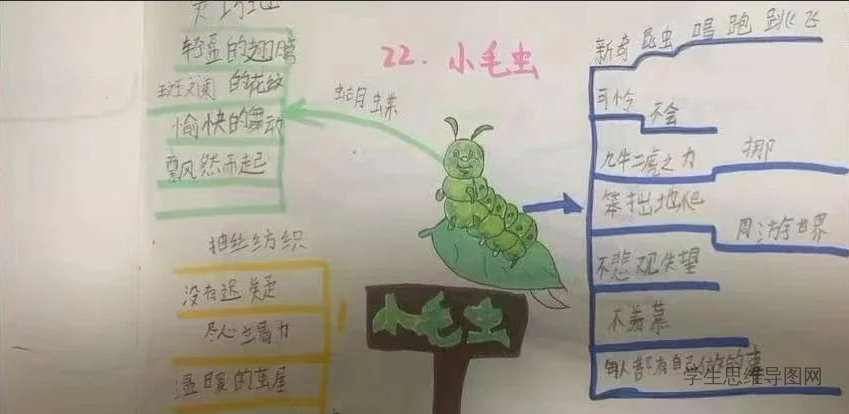 22. 小毛虫
轻盈的翅膀
斑斓的花纹
愉快的舞动
飘然而起
蝴蝶
抽丝纺织
没有迟疑
尽心竭力
温暖的茧屋
小毛虫
新奇 昆虫 唱 跑 跳 飞
可怜 不会
九牛二虎之力 挪
笨拙地爬
周游世界
不悲观失望
不羡慕
每人都有自己该做的事
学生思维导图网